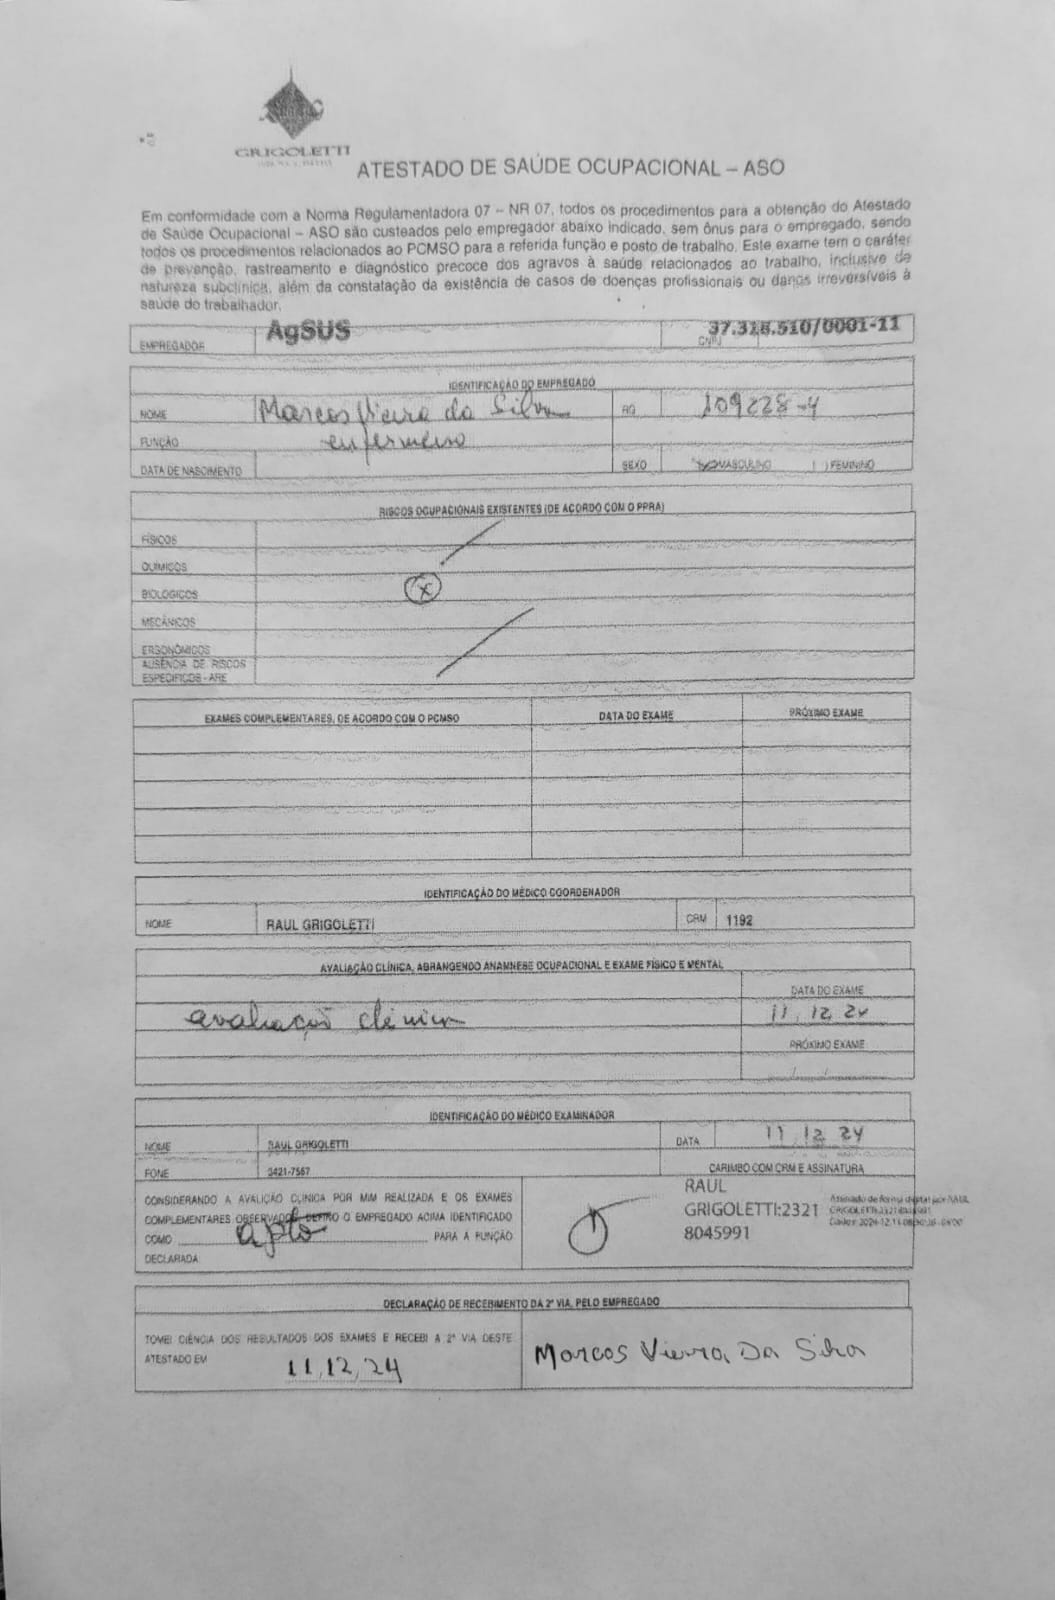 GRIGOLETTI
ATESTADO DE SAÚDE OCUPACIONAL – ASO
Em conformidade com a Norma Regulamentadora 07 – NR 07, todos os procedimentos para a obtenção do Atestado
de Saúde Ocupacional – ASO são custeados pelo empregador abaixo indicado, sem ônus para o empregado, sendo
todos os procedimentos relacionados ao PCMSO para a referida função e posto de trabalho. Este exame tem o caráter
de prevenção, rastreamento e diagnóstico precoce dos agravos à saúde relacionados ao trabalho, inclusive de
natureza subclínica, além da constatação da existência de casos de doenças profissionais ou danos irreversíveis à
saúde do trabalhador.
EMPREGADOR AgSUS CNPJ 37.318.510/0001-11
IDENTIFICAÇÃO DO EMPREGADO
NOME Marcos Vieira da Silva RG 109228-4
FUNÇÃO enfermeiro
DATA DE NASCIMENTO SEXO MASCULINO ( ) FEMININO
RISCOS OCUPACIONAIS EXISTENTES (DE ACORDO COM O PPRA)
FÍSICOS
QUÍMICOS
BIOLÓGICOS X
MECÂNICOS
ERGONÔMICOS
AUSÊNCIA DE RISCOS
ESPECÍFICOS - ARE
EXAMES COMPLEMENTARES, DE ACORDO COM O PCMSO DATA DO EXAME PRÓXIMO EXAME
IDENTIFICAÇÃO DO MÉDICO COORDENADOR
NOME RAUL GRIGOLETTI CRM 1192
AVALIAÇÃO CLÍNICA, ABRANGENDO ANAMNESE OCUPACIONAL E EXAME FÍSICO E MENTAL
DATA DO EXAME
avaliação clínica 11, 12, 24
PRÓXIMO EXAME
IDENTIFICAÇÃO DO MÉDICO EXAMINADOR
NOME RAUL GRIGOLETTI DATA 11, 12, 24
FONE 3421-7567 CARIMBO COM CRM E ASSINATURA
CONSIDERANDO A AVALIÇÃO CLÍNICA POR MIM REALIZADA E OS EXAMES
COMPLEMENTARES OBSERVADOS DEFIRO O EMPREGADO ACIMA IDENTIFICADO
COMO apto PARA A FUNÇÃO
DECLARADA
RAUL
GRIGOLETTI:2321
8045991
Assinado de forma digital por RAUL
GRIGOLETTI:23218045991
DECLARAÇÃO DE RECEBIMENTO DA 2ª VIA, PELO EMPREGADO
TOMEI CIÊNCIA DOS RESULTADOS DOS EXAMES E RECEBI A 2ª VIA DESTE
ATESTADO EM 11, 12, 24
Marcos Vieira Da Silva